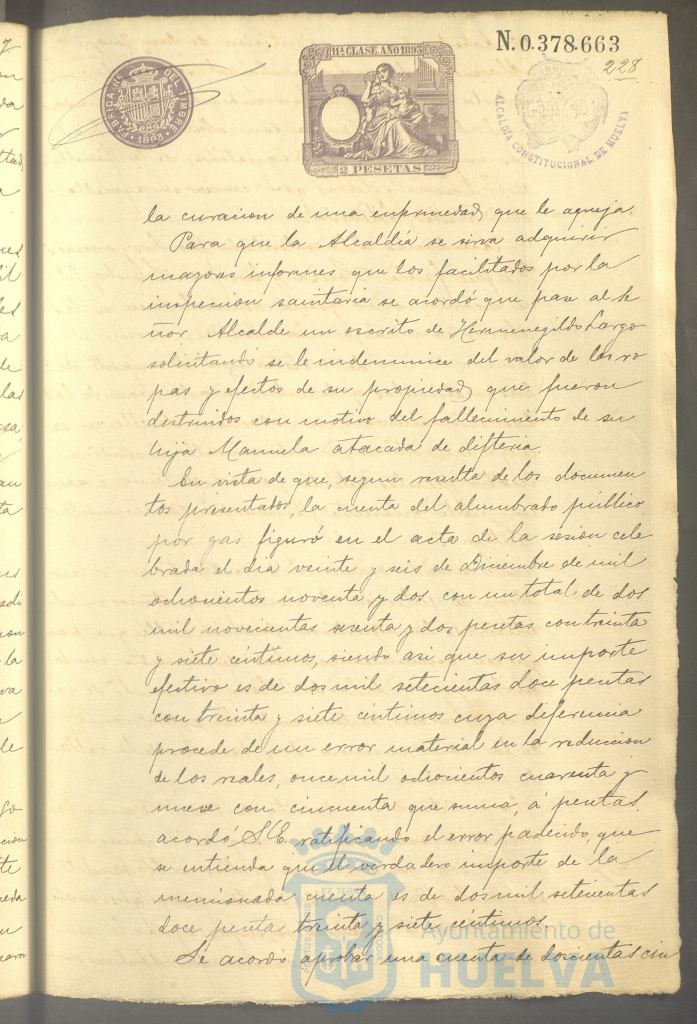 N. 0.378.663
228
11ª CLASE. AÑO 1893
2 PESETAS
FABRICA NL. DEL TIMBRE
1893
ALCALDIA CONSTITUCIONAL DE HUELVA
la curacion de una enfermedad que le aqueja.
Para que la Alcaldía se sirva adquirir
mayores informes que los facilitados por la
inspeccion sanitaria se acordó que pase al Se
ñor Alcalde un escrito de Hermenegildo Largo
solicitando se le indemnice del valor de las ro
pas y efectos de su propiedad que fueron
destruidos con motivo del fallecimiento de su
hija Manuela atacada de difteria.
En vista de que, segun resulta de los documen
tos presentados, la cuenta del alumbrado público
por gas figuró en el acta de la sesion cele
brada el dia veinte y seis de Diciembre de mil
ochocientos noventa y dos con un total de dos
mil novecientas sesenta y dos pesetas con treinta
y siete céntimos, siendo asi que su importe
efectivo es de dos mil setecientas doce pesetas
con treinta y siete céntimos cuya diferencia
procede de un error material en la reduccion
de los reales, once mil ochocientos cuarenta y
nueve con cincuenta que suma, á pesetas.
acordó S.E. ratificando el error padecido, que
se entienda que el verdadero importe de la
mencionada cuenta es de dos mil setecientas
doce pesetas treinta y siete céntimos
Se acordó aprobar una cuenta de doscientas cin
Ayuntamiento de
HUELVA